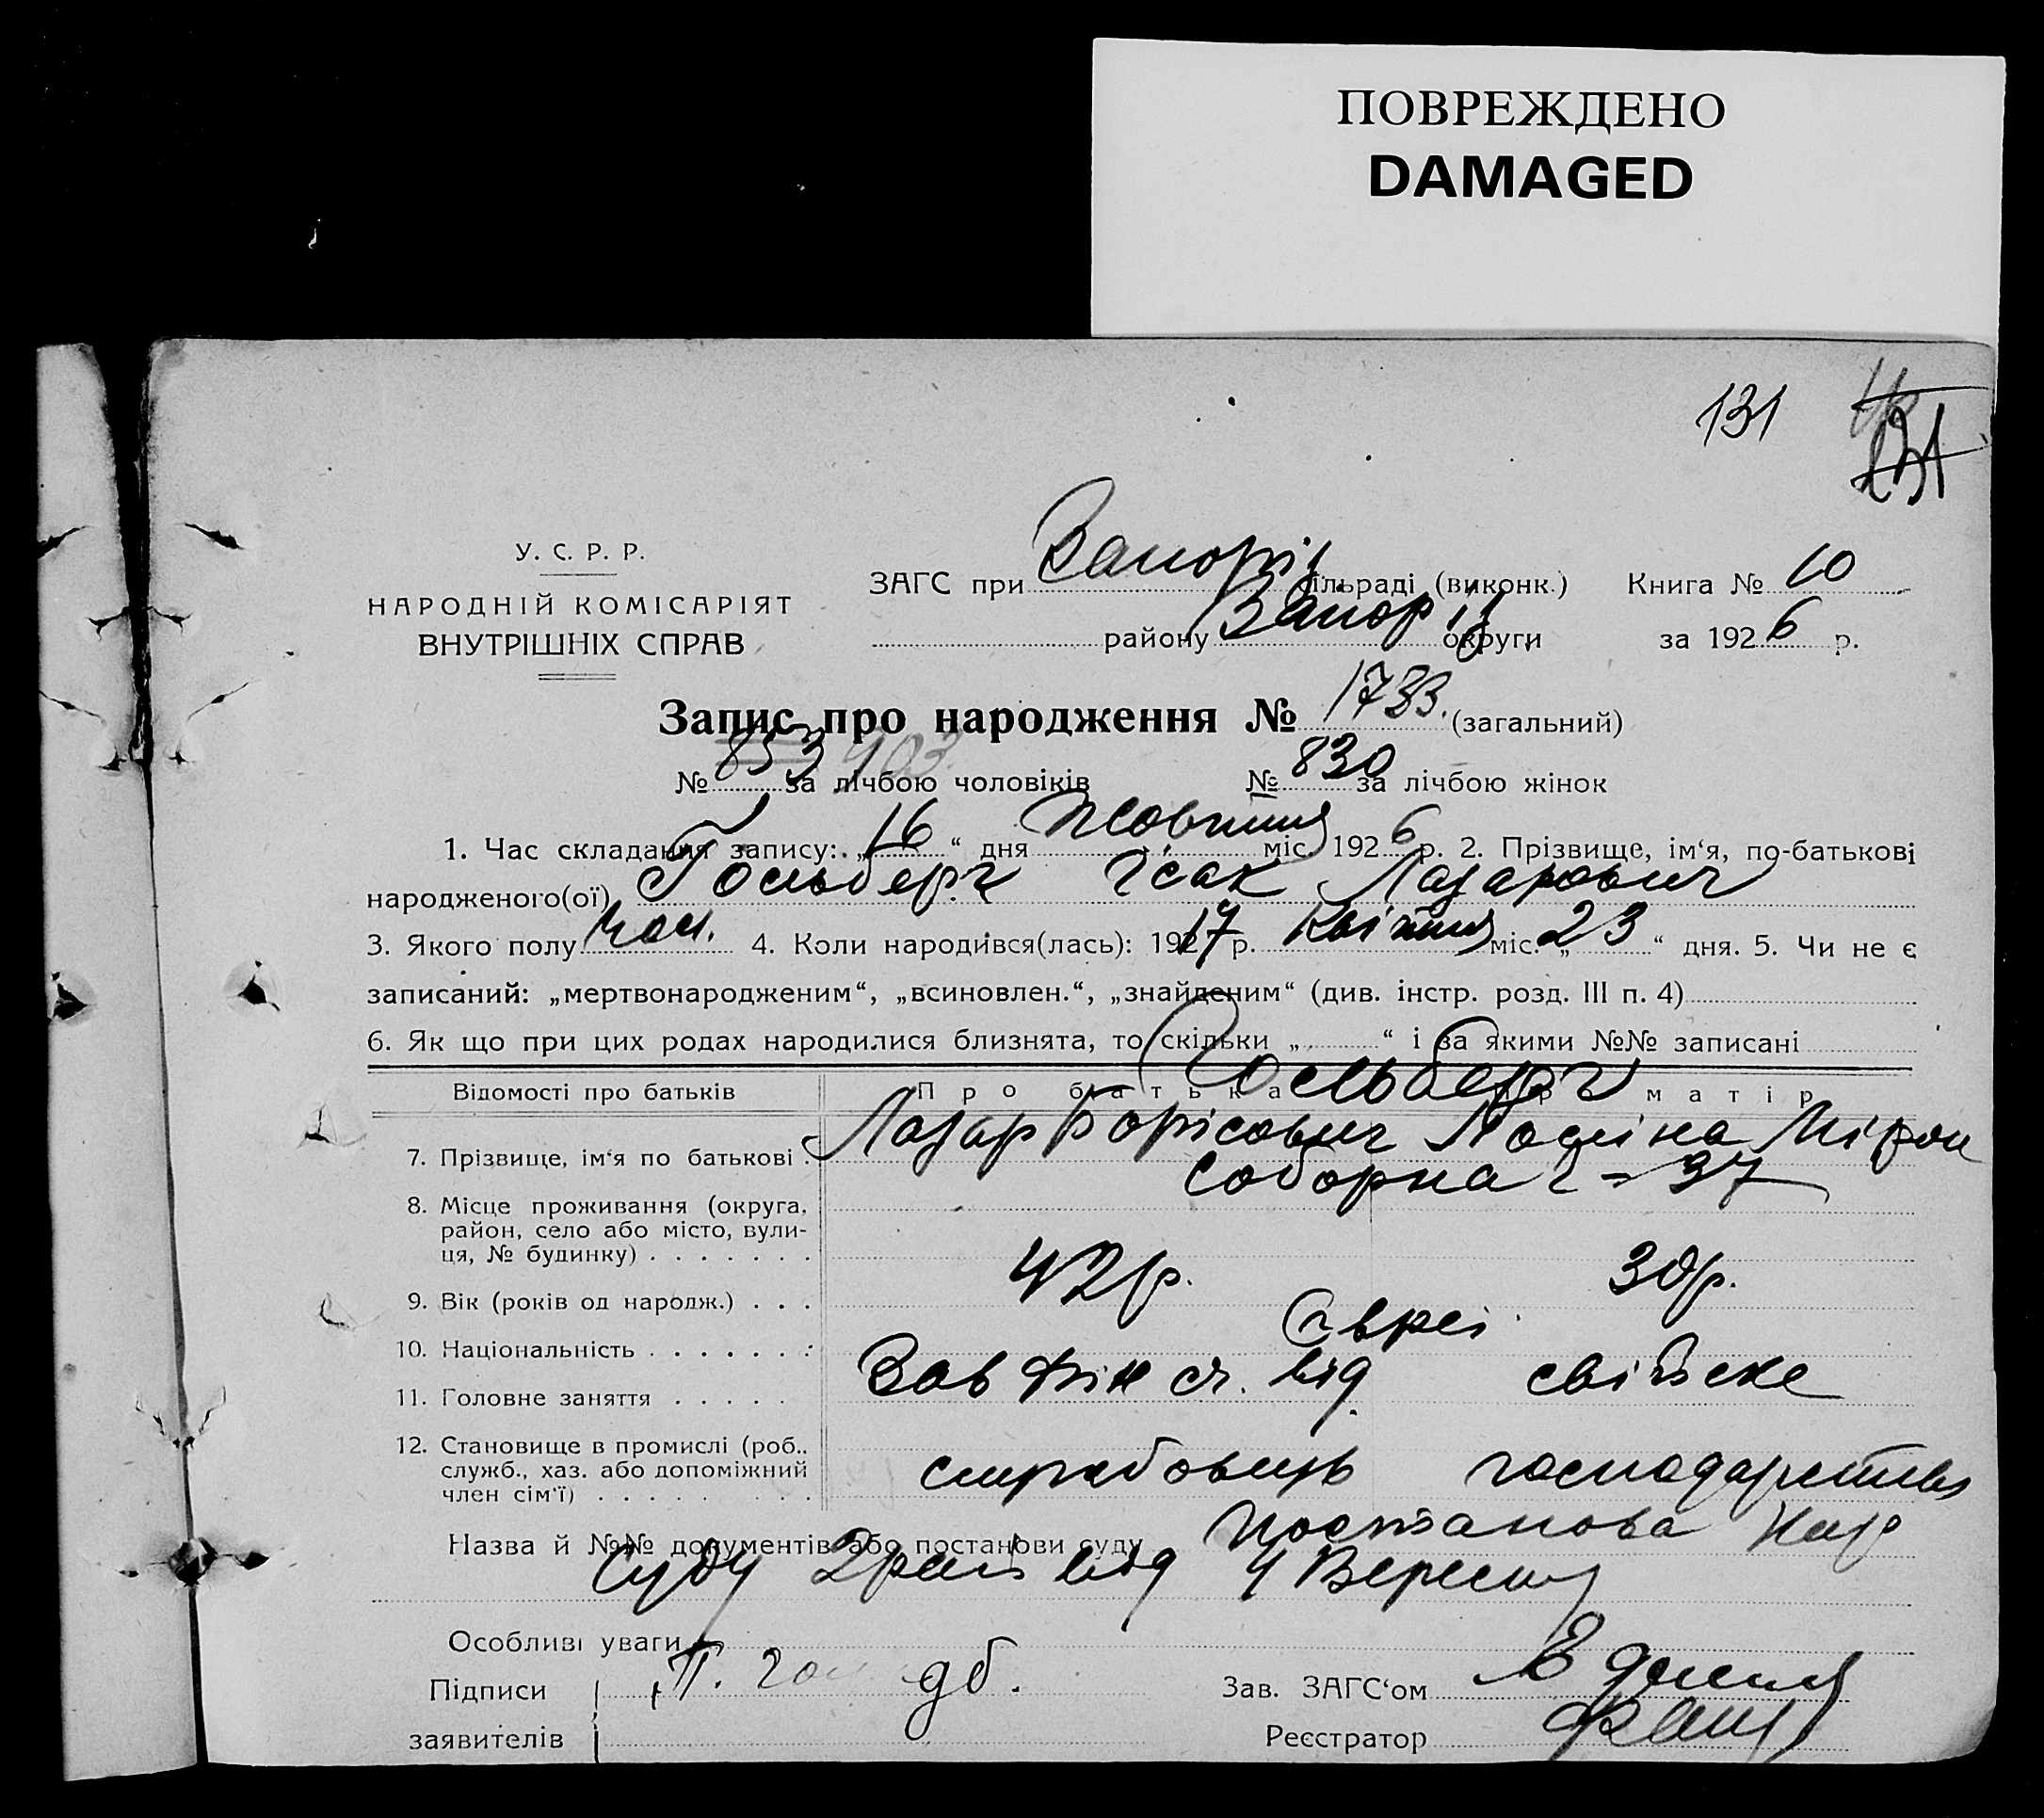 ПОВРЕЖДЕНО
DAMAGED
131
131
У. С. Р. Р.
НАРОДНІЙ КОМІСАРІЯТ
ВНУТРІШНІХ СПРАВ
ЗАГС при Запоріз. сільраді (виконк.) Книга № 10
району Запоріз. округи за 1926 р.
Запис про народження № 1733. (загальний)
№ 853 903. за лічбою чоловіків № 830 за лічбою жінок
1. Час складання запису: „16“ дня Жовтня міс. 1926 р. 2. Прізвище, ім‘я, по-батькові
народженого(ої) Гольберг Ісак Лазарович
3. Якого полу чол. 4. Коли народився(лась): 1917 р. Квітня міс. „23“ дня. 5. Чи не є
записаний: „мертвонародженим“, „всиновлен.“, „знайденим“ (див. інстр. розд. III п. 4)
6. Як що при цих родах народилися близнята, то скільки „ “ і за якими №№ записані
Відомості про батьків Про батька Про матір
Гольберг
7. Прізвище, ім‘я по батькові Лазар Борісович Поліна Мірон
8. Місце проживання (округа, Соборна 97
район, село або місто, вули-
ця, № будинку)
9. Вік (років од народж.) 42 р. 30 р.
10. Національність Євреї
11. Головне заняття Зав Фін від свійске
12. Становище в промислі (роб.,
служб., хаз. або допоміжний службовець господарство
член сім‘ї)
Назва й №№ документів або постанови суду Постанова Нар
Суду 2 рай від 4 Вересня
Особливі уваги
Підписи П. дб. Зав. ЗАГС‘ом
заявителів Реєстратор